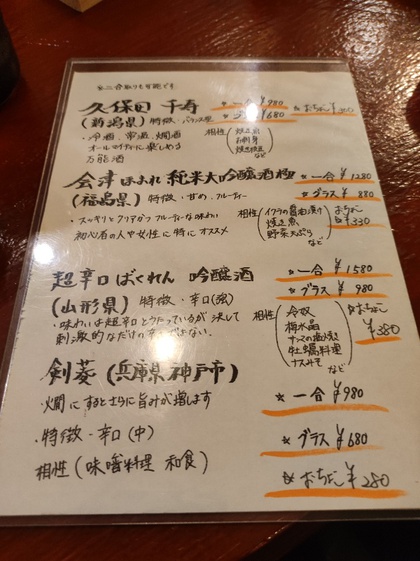 ※二合取りも可能です
久保田 千寿 ☆一合¥980 ☆おちょこ
(新潟県) 特徴・バランス型 ¥680
・冷酒、常温、燗酒
オールマイティに楽しめる
万能酒
相性(焼魚
お刺身
など)
会津ほまれ 純米大吟醸酒 極 ☆一合 ¥1280
(福島県) 特徴・甘め、フルーティー ☆グラス ¥880
・スッキリとクリアかつフルーティな味わい
初心者の人や女性に特にオススメ
相性(イクラの醤油漬け
焼き魚
野菜天ぷら
など)
おちょこ
¥330
超辛口 ばくれん 吟醸酒 ☆一合 ¥1580
(山形県) 特徴・辛口(強) ☆グラス ¥980
・味わいは超辛口とうたっているが決して
刺激的なだけの辛さではない。
相性(冷奴
梅水晶
牡蠣料理
ナスみそ
など)
☆おちょこ
¥380
剣菱 (兵庫県神戸市)
・燗にするとさらに旨みが増します ☆一合 ¥980
・特徴・辛口(中) ☆グラス ¥680
相性(味噌料理 和食) ☆おちょこ¥280